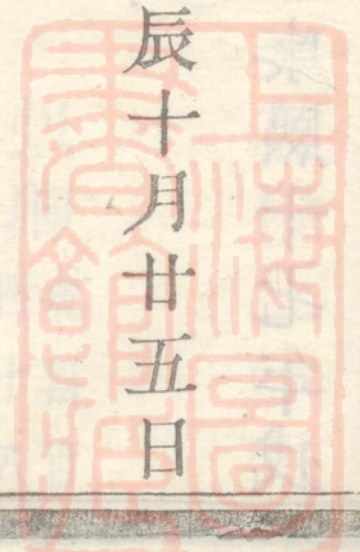 辰十月廿五日